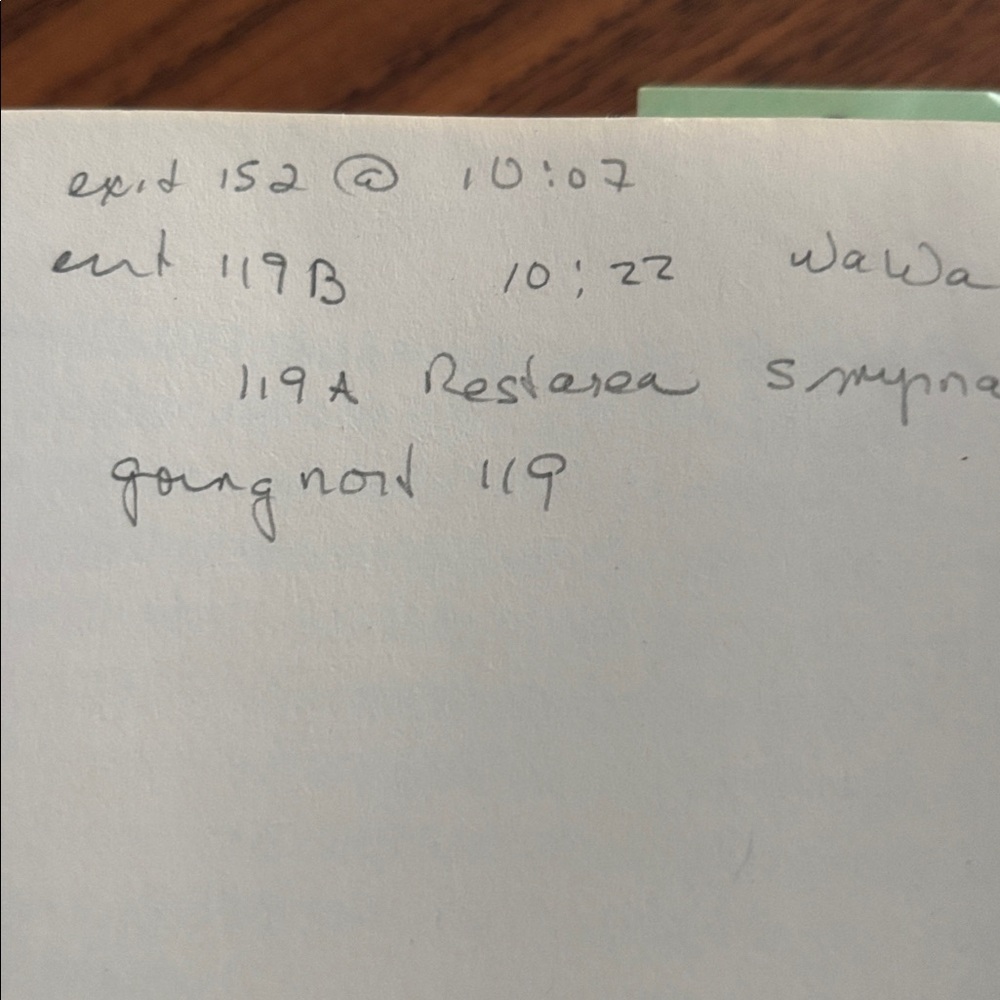 exit 152 @ 10:07
ent 119B 10:22 WaWa
119A Restarea Smyrna
going nort 119